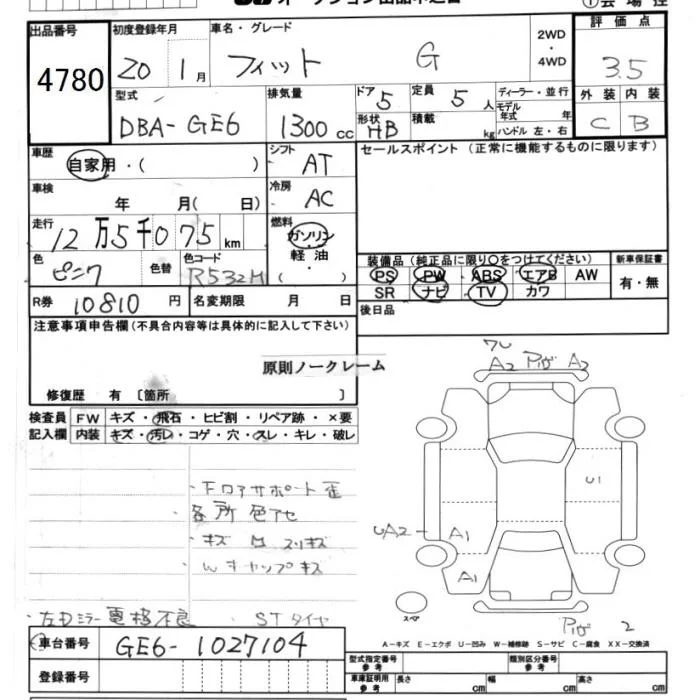 出品番号
初度登録年月
車名・グレード
2WD
・
4WD
評価点
4780
20 1月
フィット G
3.5
型式
排気量
ドア 5
定員 5 人
ディーラー・並行
外装 内装
DBA-GE6
1300 cc
形状 HB
積載 kg
モデル年式 年
ハンドル 左・右
C B
車歴
自家用・( )
シフト AT
セールスポイント (正常に機能するものに限ります)
車検
年 月( 日)
冷房 AC
走行
12万5千075 km
燃料
ガソリン
軽油
・( )
色
ピンク
色替
色コード
R532H
装備品 (純正品に限り○をつけてください)
新車保証書
PS PW ABS エアB AW
有・無
SR ナビ TV カワ
R券 10810 円
名変期限 月 日
後日品
注意事項申告欄 (不具合内容等は具体的に記入して下さい)
原則ノークレーム
修復歴 有 〔箇所 〕
A2 A2
検査員
記入欄
FW キズ・飛石・ヒビ割・リペア跡・×要
内装 キズ・汚レ・コゲ・穴・スレ・キレ・破レ
U1
下回アサポート歪
各所色アセ
・キズ M スリキズ
Wキャップキズ
UA2
A1
A1
・左Dミラー電格不良 STタイヤ
スペア
2
車台番号 GE6-1027104
A-キズ E-エクボ U-凹み W-補修跡 S-サビ C-腐食 XX-交換済
登録番号
型式指定番号 参考
類別区分番号 参考
車庫証明用 参考
長さ cm
幅 cm
高さ cm